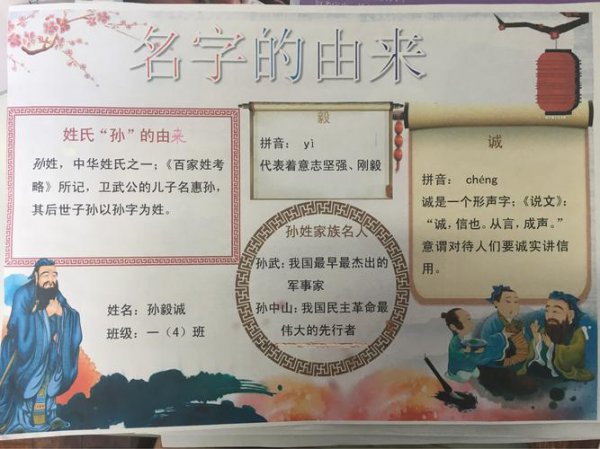 名字的由来
姓氏“孙”的由来
孙姓，中华姓氏之一；《百家姓考
略》所记，卫武公的儿子名惠孙，
其后世子孙以孙字为姓。
毅
拼音： yì
代表着意志坚强、刚毅
诚
拼音： chéng
诚是一个形声字；《说文》：
“诚，信也。从言，成声。”
意谓对待人们要诚实讲信
用。
孙姓家族名人
孙武：我国最早最杰出的
军事家
孙中山：我国民主革命最
伟大的先行者
姓名：孙毅诚
班级：一（4）班